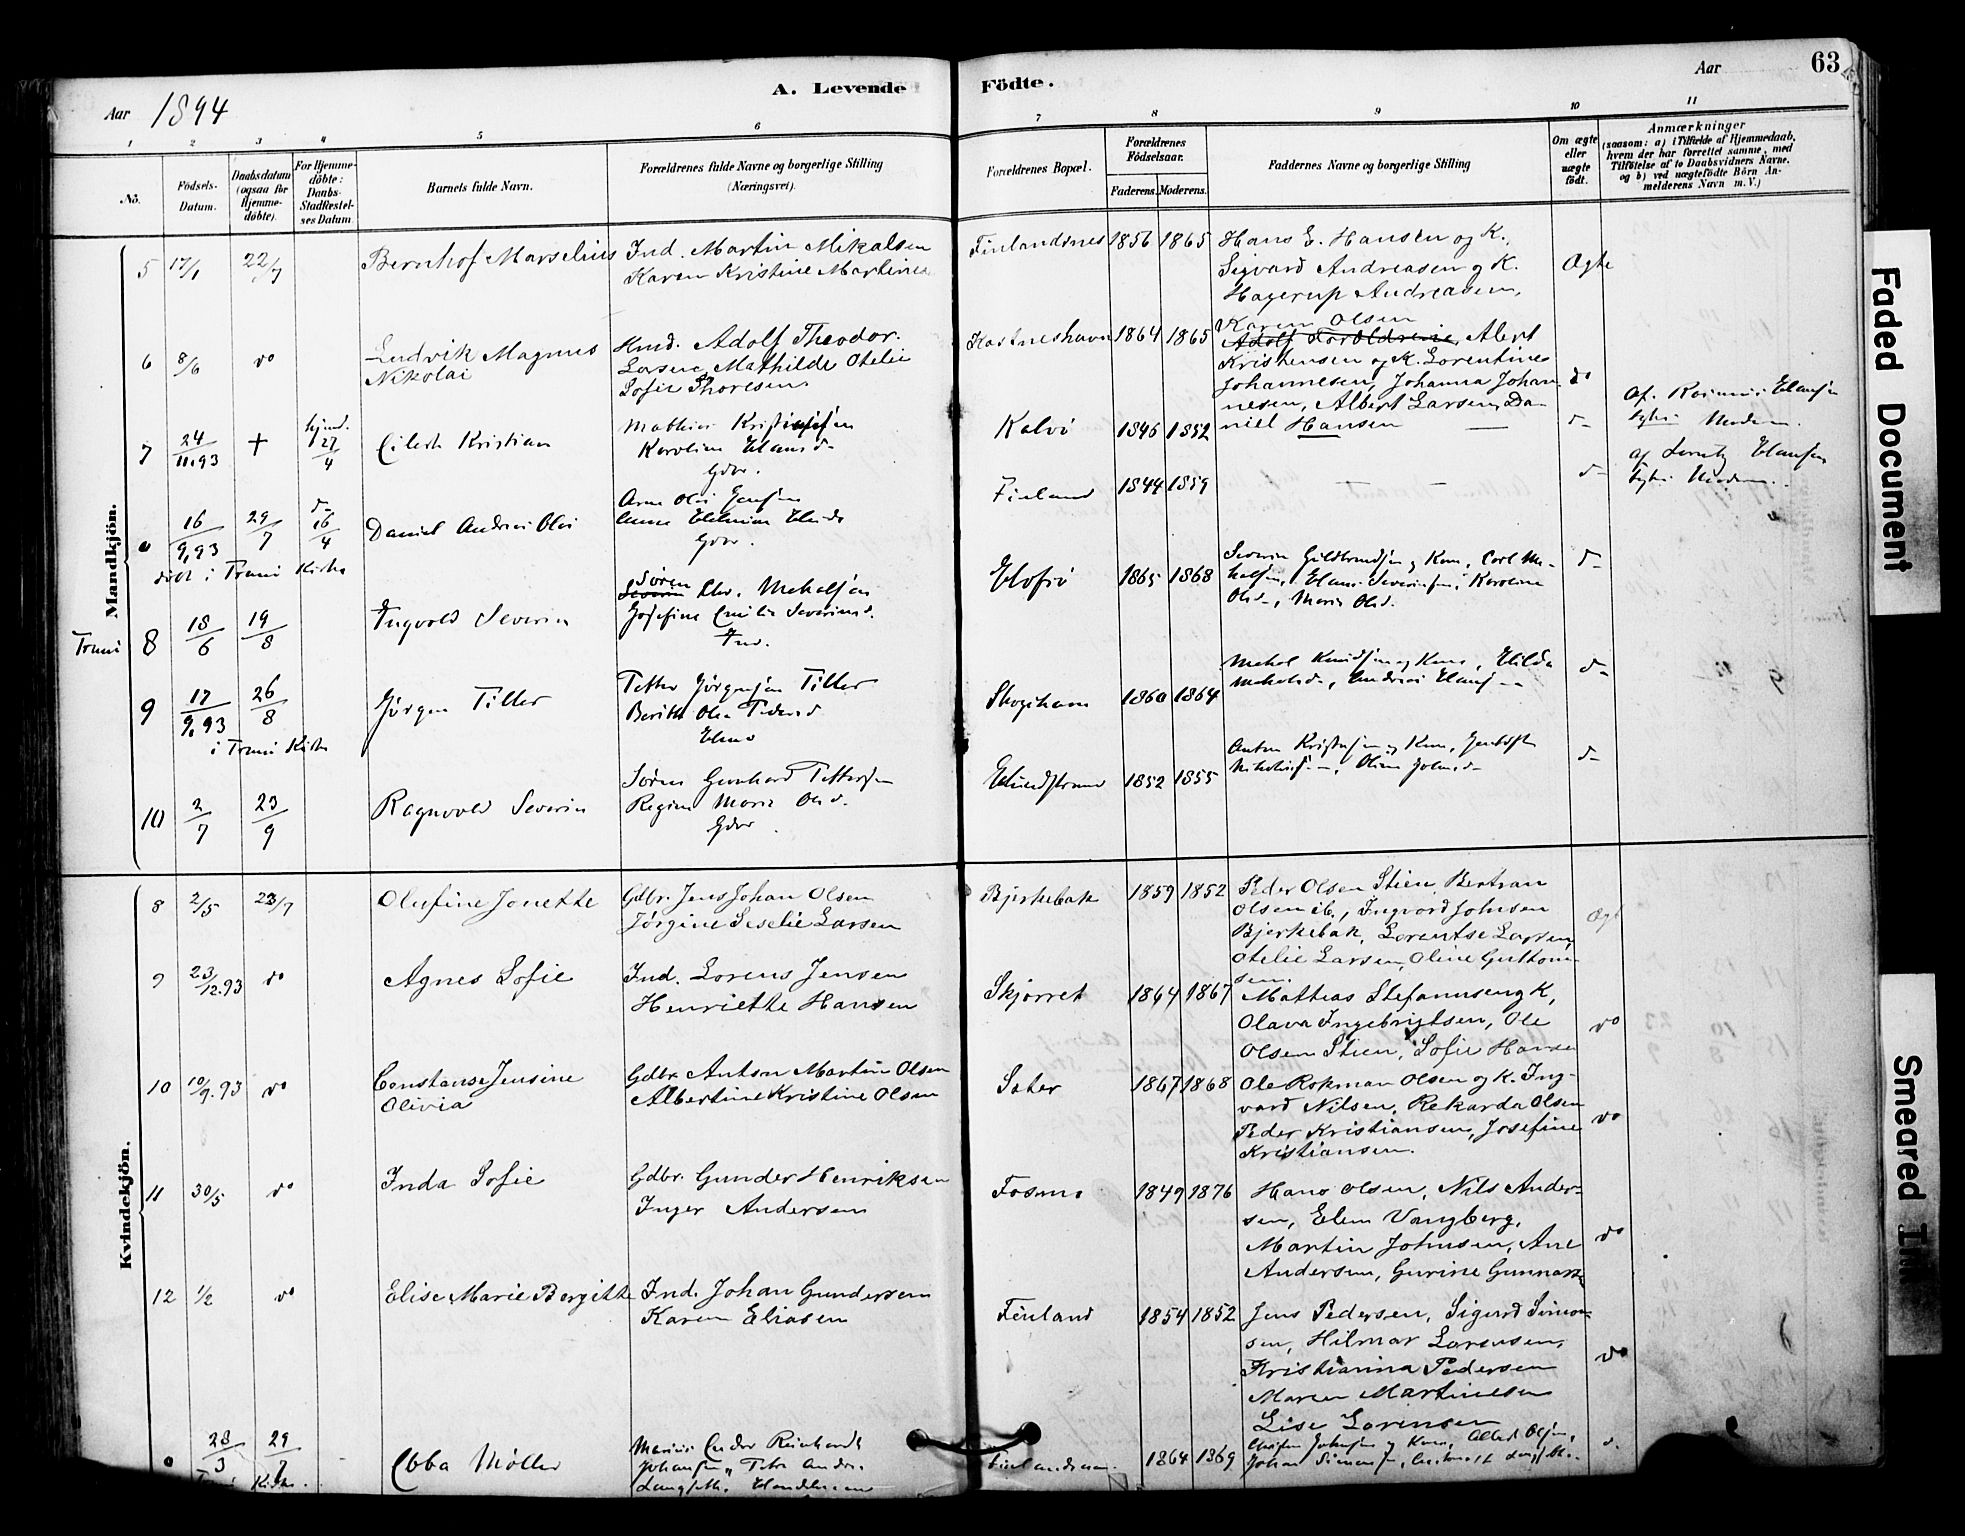 Aar 1894
A. Levende
Födte.
Aar
63
1 2 3 4 5 6 7 8 9 10 11
No.
Födsels-Datum.
Daabsdatum (ogsaa för Hjemme-döbte).
For Hjemme-döbte: Daabs-Stadfæstel-ses Datum
Barnets fulde Navn.
Forældrenes fulde Navne og borgerlige Stilling
(Næringsvei).
Forældrenes Bopæl.
Forældrenes Födselsaar.
Faderens. Moderens.
Faddernes Navne og borgerlige Stilling
Om ægte eller uægte födt.
Anmærkninger
(saasom: a) i Tilfælde af Hjemmedaab,
hvem der har forrettet samme, med
Tilföielse af to Daabsvidners Navne,
og b) ved uægtefödte Börn An-
melderens Navn m. V.)
Mandkjön.
5 17/1 22/7 Bernhof Marselius
Ind. Martin Mikalsen
Karen Kristine Martines
Finlandsnes 1856 1865
Hans E. Hansen og K.
Sigvard Andreasen og K.
Hagerup Andreasen,
Karen Olsen
Ægte
6 8/6 do Ludvik Magnus
Nikolai
Hmd. Adolf Theodor
Larsen, Mathilde Otelie
Sofie Thoresen
Kastneshavn 1864 1865
Adolf Forældrene, Albert
Kristensen og K. Lorentines
Johannesen, Johanna Johan
nesen, Albert Larsen, Da-
niel Hansen
do
7 24/11.93 + hjmd. 27/4 Eilert Kristian
Mathias Kristiansen
Karoline Hansd
Gdbr.
Kalvö 1846 1852
d-
16/9,93 29/7 d- 16/4 Daniel Andreas Olai
döbt i Tranö Kirke
Arne Olai Jensen
Gdbr.
Finland 1844 1859
d-
Tranö 8 18/6 19/8 Ingvold Severin
Sören Chr. Mekalsen
Josefine Emilie Severinsd.
Ind.
1865 1868
Severin Hildbrandsen og Kone, Carl Me-
kalsen, Hans Severinsen, Karoline
Olsd-, Marie Olsd.
d-
9 17/9,93 26/8 Jörgen Tiller
i Tranö Kirke
Petter Jörgensen Tiller
Berith Olea Pedersd
1860 1864
Mekal Knudsen og Kone, Hilda
Mekalsd-, Andreas Hans-
d-
10 2/7 23/9 Ragnvald Severin
Sören Gerhard Pettersen
Regine Marie Olsd.
Gdbr.
1852 1855
Anton Kristofsen og Kone,
d-
Kvindekjön.
8 2/5 22/7 Olufine Jonette
Gdbr. Jens Johan Olsen
Jörgine Seselie Larsen
Bjerkebak 1859 1852
Peder Olsen Stien, Bertran
Olsen ib., Ingvard Johnsen
Bjerkebak, Lorentse Larsen,
Otelie Larsen, Oline Guttorm-
sen.
Ægt
9 23/12.93 do Agnes Sofie
Ind. Lorens Jensen
Henriette Hansen
Skjorret 1864 1867
Mattias Stefannsen og K,
Olava Ingebrigtsen, Ole
Olsen Stien, Sofie Hansen
do
10 10/9.93 do Constanse Jensine
Olivia
Gdbr. Anton Martin Olsen
Albertine Kristine Olsen
Sater 1867 1868
Ole Rokman Olsen og K. Ing-
vard Nilsen, Rekarda Olsen
Peder Kristiansen, Josefine
Kristiansen.
do
11 30/5 do Inda Sofie
Gdbr. Gunder Henriksen
Inger Andersen
Fosmo 1849 1876
Hans Olsen, Nils Ander-
sen, Elen Vangberg,
Martin Johnsen, Ane
Andersen, Gurine Gunnars
do
12 1/2 do Elise Marie Bergitte
Ind. Johan Gundersen
Karen Eliasen
Finland 1854 1852
Jens Pedersen, Sigurd Simon-
sen, Hilmar Lorensen,
Kristianna Pedersen
Maren Martinesen
Lise Lorensen
do
28/3 29/7 Ebba Möller
Marius Ender Reinhardt
Johansen,
1864 1869
Faded Document
Smeared Ink